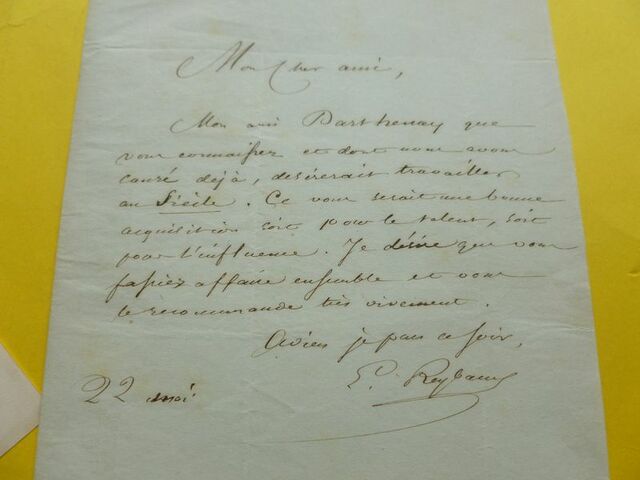 Mon cher ami,
Mon ami Parthenay que
vous connaissez et dont nous avons
causé déjà, désirerait travailler
au Siècle. Ce vous serait une bonne
acquisition soit pour le talent, soit
pour l'influence. Je désire que vous
fassiez affaire ensemble et vous
le recommande très vivement.
Adieu je pars ce soir,
L. Reybaud
22 mai